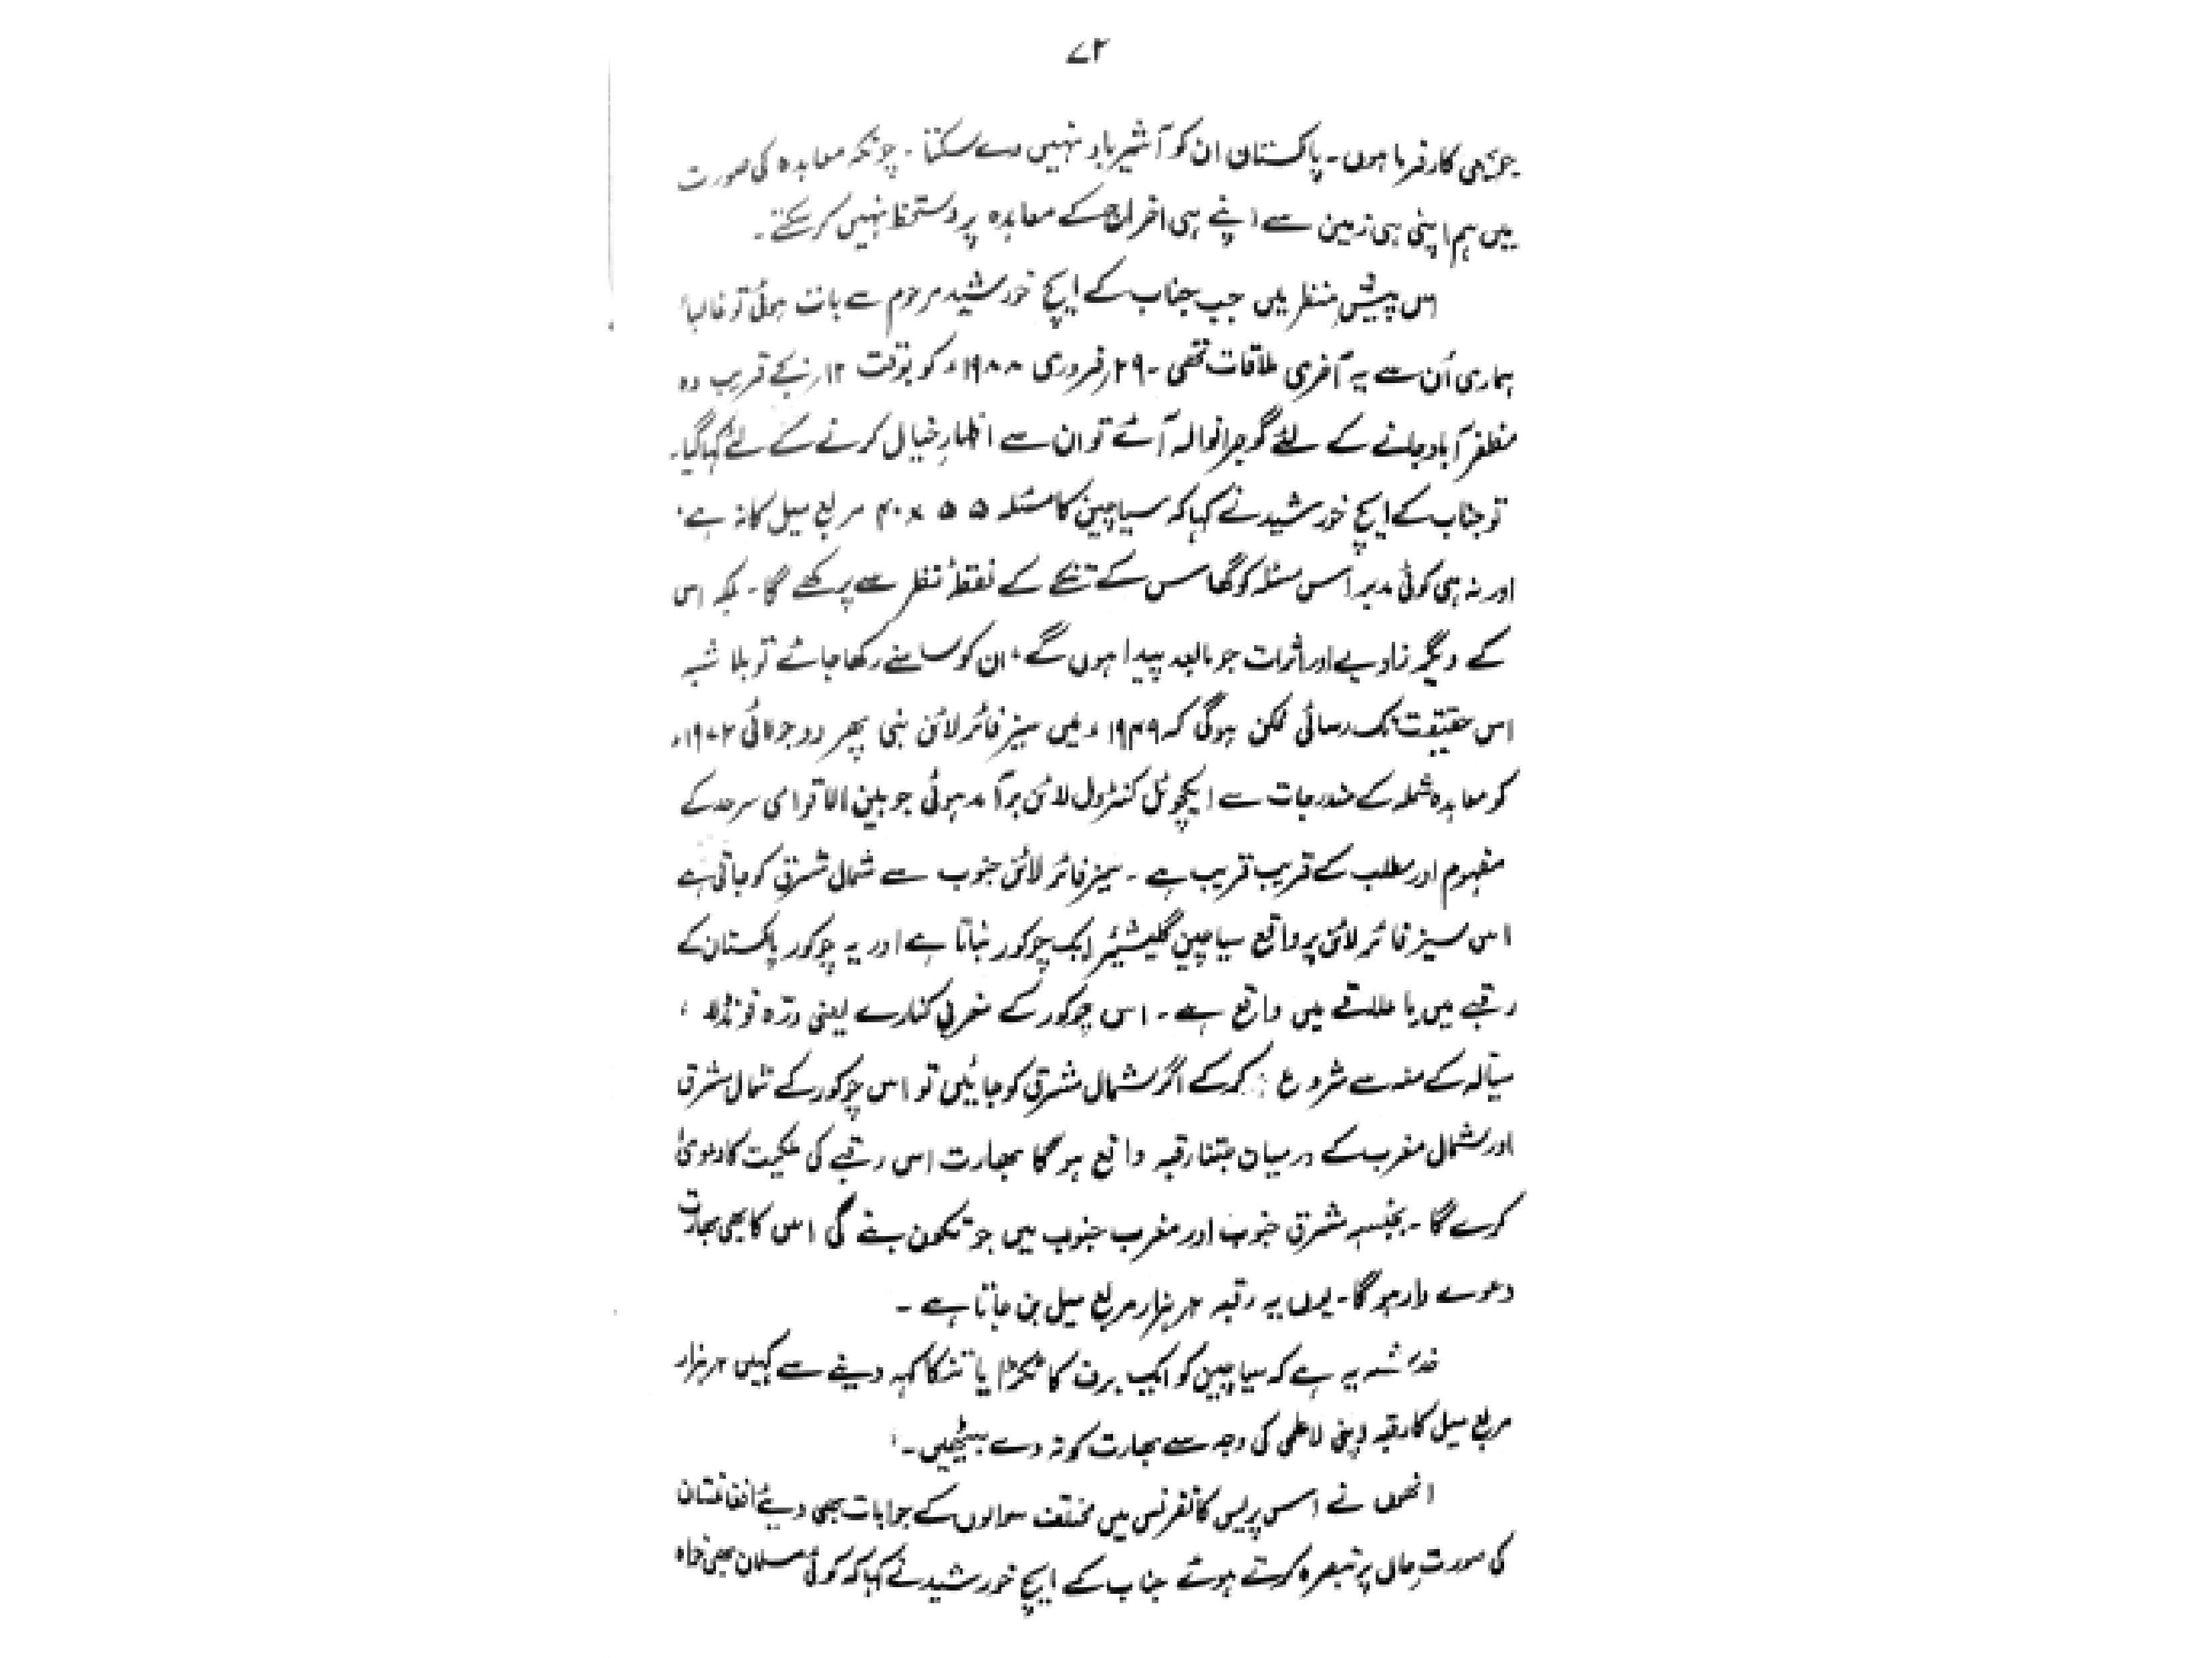 ۷۲
جو بھی کارفرما ہوں۔ پاکستان ان کو آشیرباد نہیں دے سکتا۔ چونکہ معاہدہ کی صورت
میں ہم اپنی ہی زمین سے اپنے ہی اخراج کے معاہدہ پر دستخط نہیں کر سکتے۔
اس پیش منظر میں جب جناب کے ایچ خورشید مرحوم سے بات ہوئی تو غالباً
ہماری اُن سے یہ آخری ملاقات تھی۔ ۲۹ فروری ۱۹۸۸ء کو بوقت ۱۲ بجے قریب وہ
مظفر آباد جانے کے لئے گوجرانوالہ آئے تو ان سے اظہارِ خیال کرنے کے لئے کہا گیا۔
تو جناب کے ایچ خورشید نے کہا کہ سیاچین کا مسئلہ ۵۵ x ۴۰ مربع میل کا نہ ہے۔
اور نہ ہی کوئی مدبر اس مسئلہ کو گھاس کے تنکے کے نقطۂ نظر سے پرکھے گا۔ بلکہ اس
کے دیگر زاویے اور اثرات جو مابعد پیدا ہوں گے، ان کو سامنے رکھا جائے تو بلا شبہ
اس حقیقت تک رسائی ممکن ہوگی کہ ۱۹۴۹ء میں سیز فائر لائن بنی پھر دو جولائی ۱۹۷۲ء
کو معاہدہ شملہ کے مندرجات سے ایکچوئل کنٹرول لائن برآمد ہوئی جو بین الاقوامی سرحد کے
مفہوم اور مطلب کے قریب قریب ہے۔ سیز فائر لائن جنوب سے شمال مشرق کو جاتی ہے
اس سیز فائر لائن پر واقع سیاچین گلیشئیر ایک چوکور بناتا ہے اور یہ چوکور پاکستان کے
رقبے میں یا علاقے میں واقع ہے۔ اس چوکور کے مغربی کنارے یعنی درّہ فونڈلا،
سیالہ کے منہ سے شروع کر کے اگر شمال مشرق کو جائیں تو اس چوکور کے شمال مشرق
اور شمال مغرب کے درمیان جتنا رقبہ واقع ہو گا بھارت اس رقبے کی ملکیت کا دعویٰ
کرے گا۔ بجنسہٖ مشرق جنوب اور مغرب جنوب میں جو تکون بنے گی اس کا بھی بھارت
دعوے دار ہو گا۔ یوں یہ رقبہ ہزار مربع میل بن جاتا ہے۔
خدشہ یہ ہے کہ سیاچین کو ایک برف کا ٹکڑا یا تنکا کہہ دینے سے کہیں ہزار
مربع میل کا رقبہ اپنی لاعلمی کی وجہ سے بھارت کو نہ دے بیٹھیں۔
انھوں نے اس پریس کانفرنس میں مختلف سوالوں کے جوابات بھی دیئے افغانستان
کی صورتِ حال پر تبصرہ کرتے ہوئے جناب کے ایچ خورشید نے کہا کہ کوئی مسلمان بھی خواہ